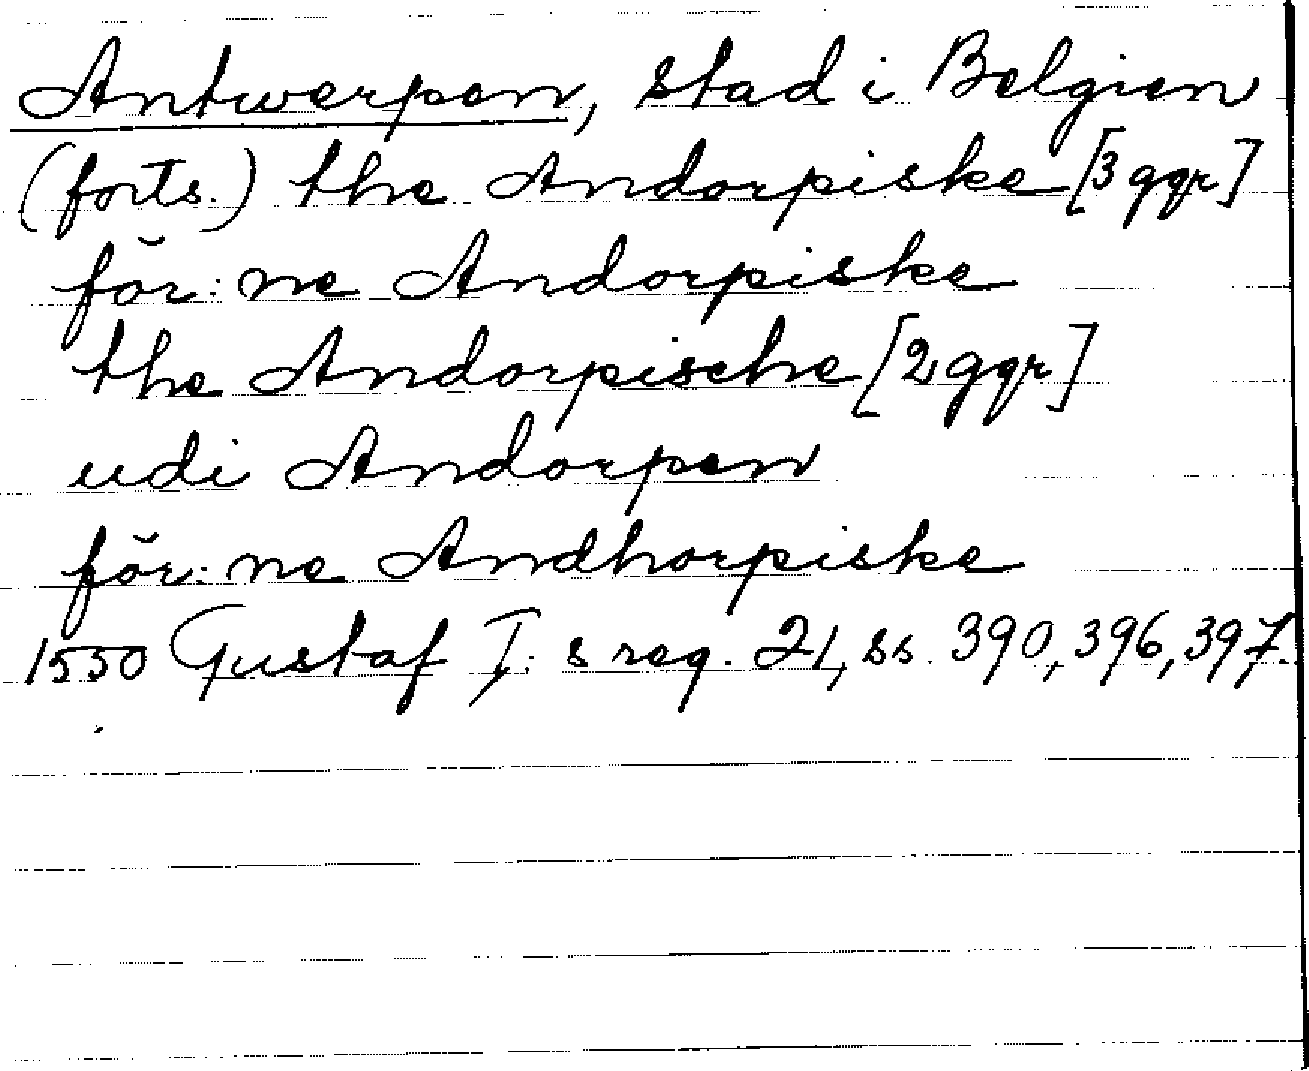 Antwerpen, stad i Belgien
(forts.) the Andorpiske [3 ggr]
för:ne Andorpiske
the Andorpische [2 ggr]
udi Andorpen
för:ne Andhorpiske
1550 Gustaf I:s reg. 21, ss. 390, 396, 397.